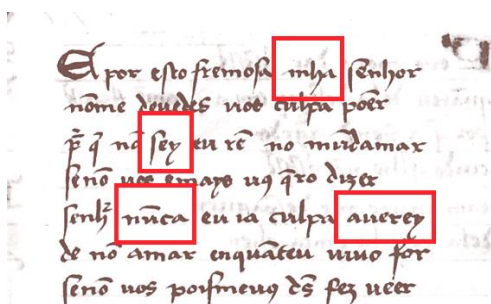 E por esto fremosa mha senhor
nõme deuedes uos culpa põer
p̃ q̃ nõ sey eu rẽ no mũdamar
senõ uos
senh̃ nũca eu ia culpa auerey
de nõ amar enquãteu uiuo for
senõ uos poismeuꝯ d̃s fez ueer